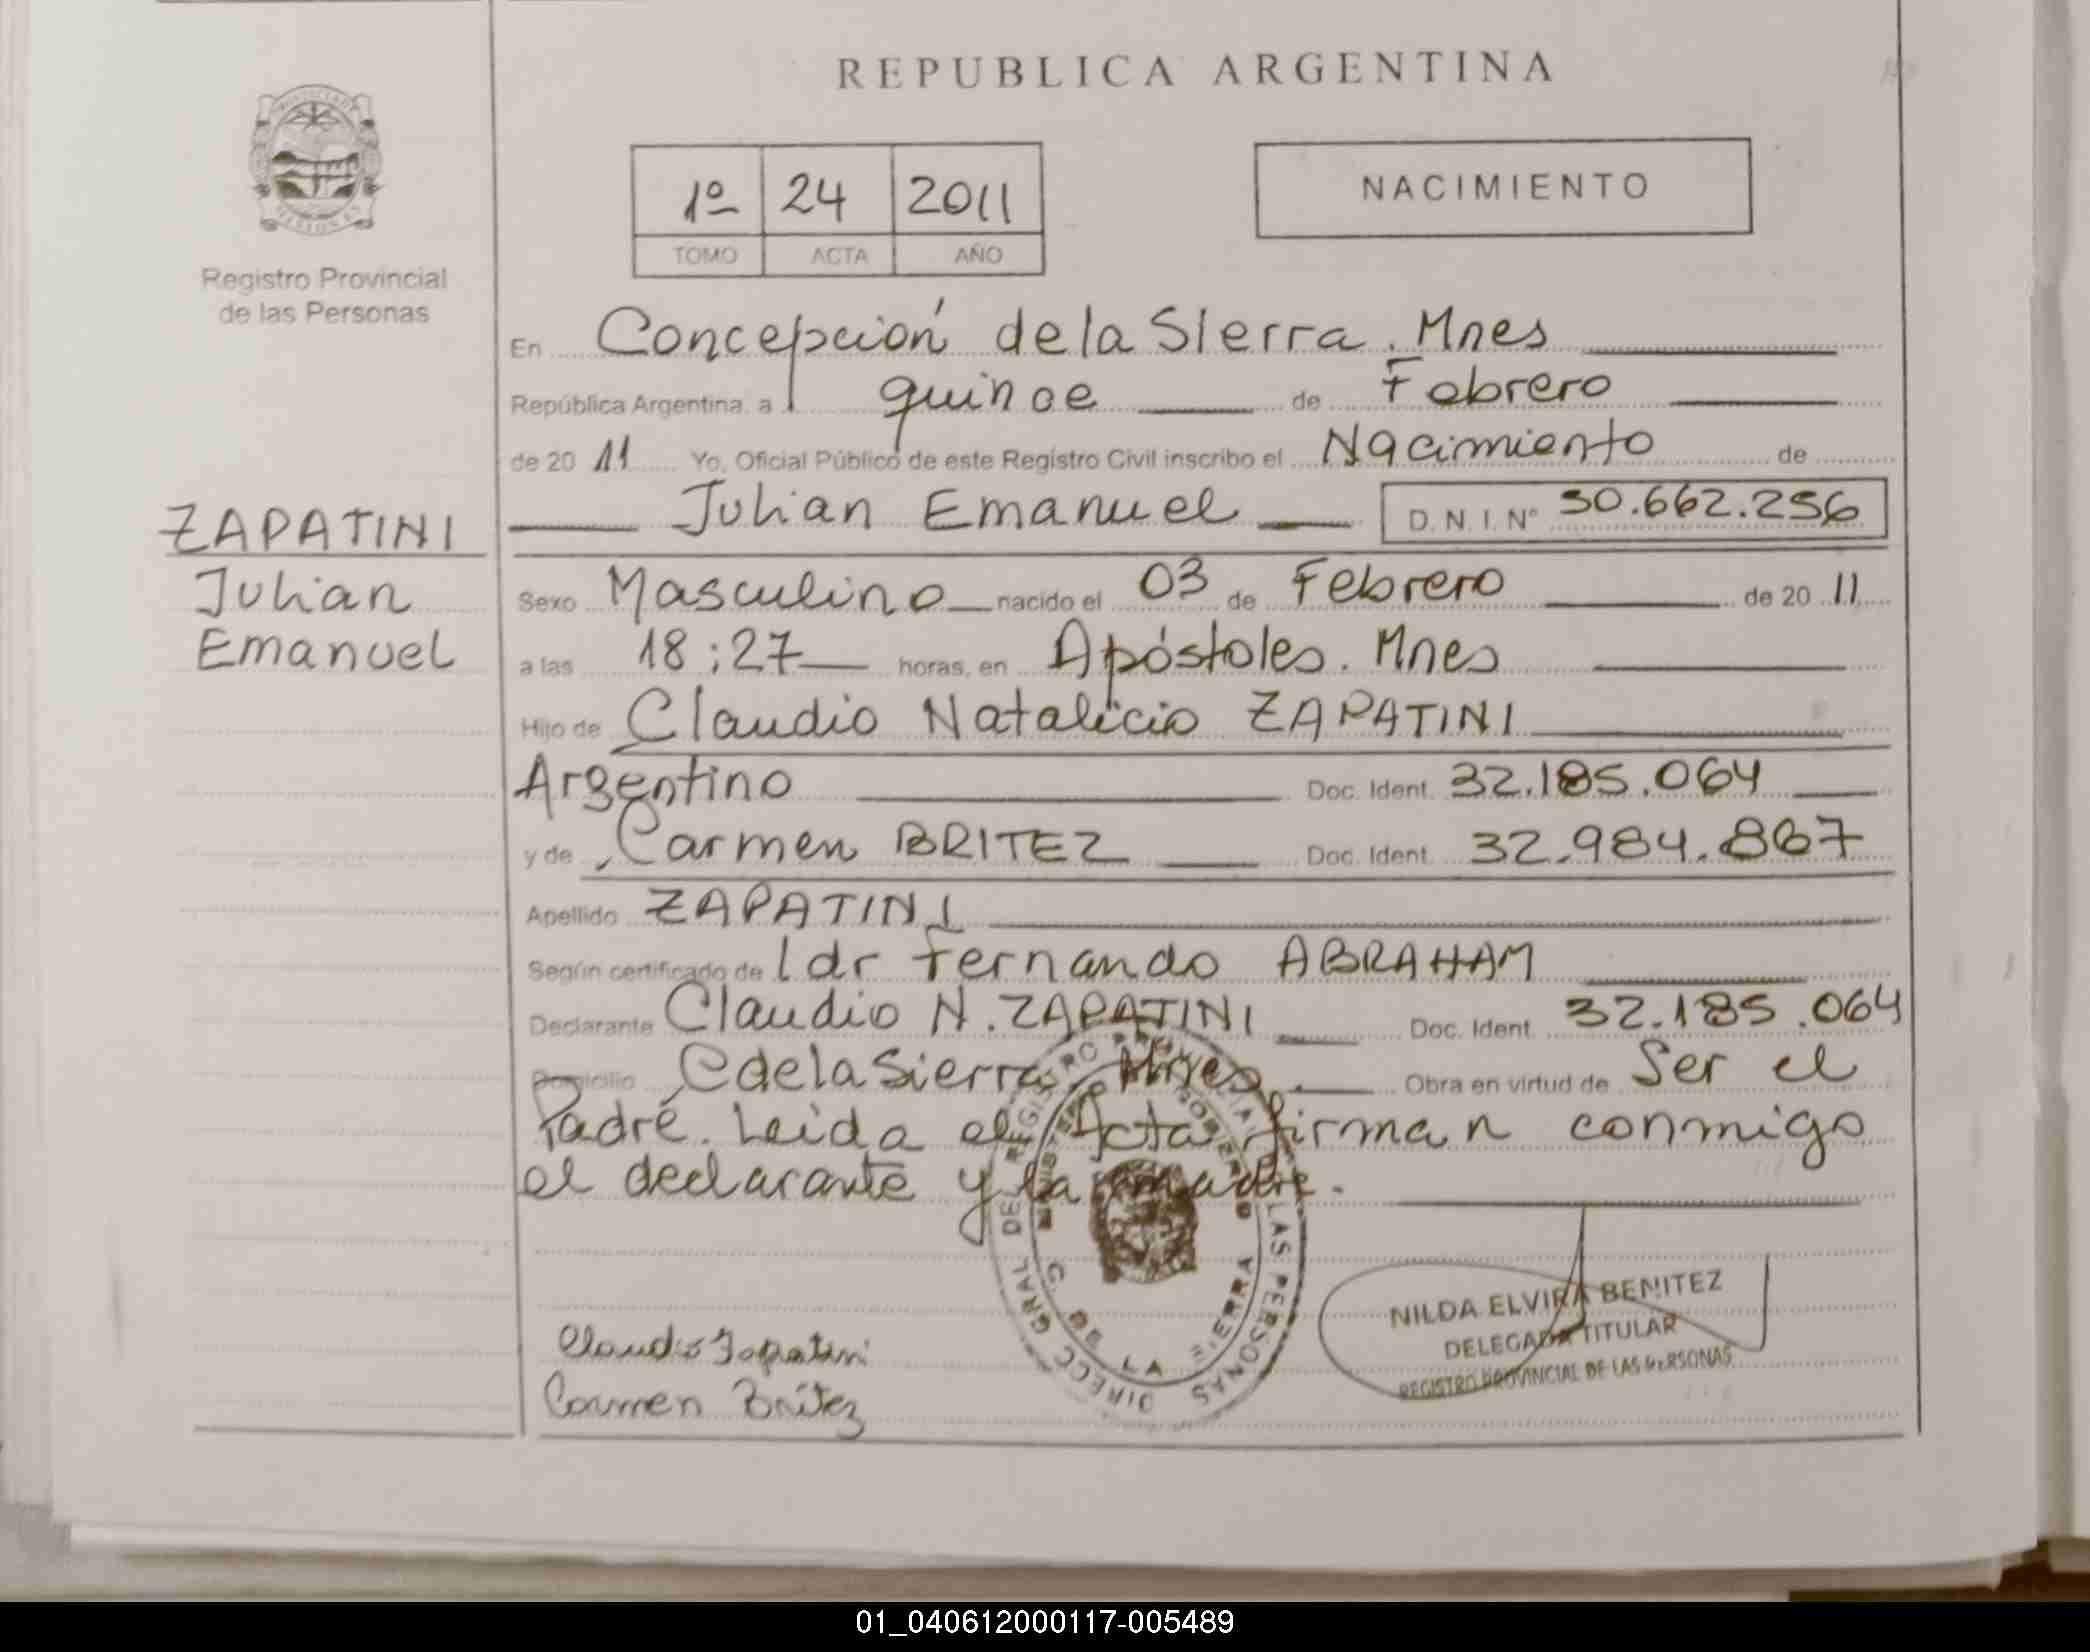 REPUBLICA ARGENTINA
1º 24 2011
TOMO ACTA AÑO
NACIMIENTO
Registro Provincial
de las Personas
En Concepción de la Sierra. Mnes
República Argentina a quince de Febrero
de 2011 Yo, Oficial Público de este Registro Civil inscribo el Nacimiento de
Julian Emanuel D.N.I. Nº 50.662.256
ZAPATINI
Julian
Emanuel
Sexo Masculino nacido el 03 de Febrero de 2011
a las 18:27 horas, en Apóstoles. Mnes
Hijo de Claudio Natalicio ZAPATINI
Argentino Doc. Ident. 32.185.064
y de Carmen BRITEZ Doc. Ident. 32.984.867
Apellido ZAPATINI
Según certificado de ldr Fernando ABRAHAM
Declarante Claudio N. ZAPATINI Doc. Ident. 32.185.064
Domicilio C de la Sierra. Mnes. Obra en virtud de Ser el
Padre. Leida el Acta firman conmigo
el declarante y la madre.
DIRECC GRAL DEL REGISTRO PROVINCIAL LAS PERSONAS
C DE LA SIERRA
Claudio Zapatini
Carmen Britez
NILDA ELVIRA BENITEZ
DELEGADA TITULAR
REGISTRO PROVINCIAL DE LAS PERSONAS
01_040612000117-005489